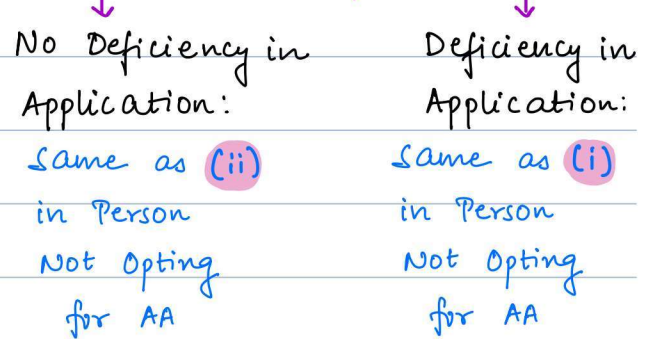 No Deficiency in
Application:
Same as (ii)
in Person
Not Opting
for AA
Deficiency in
Application:
Same as (i)
in Person
Not Opting
for AA